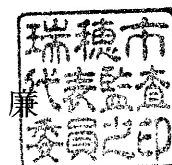 瑞穂市
代表監査
委員之印
廉